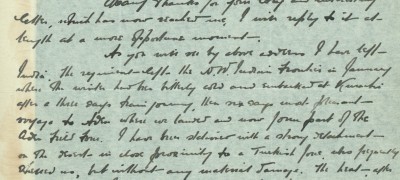 Many thanks for your long and interesting
letter, which has now reached me, I will reply to it at
length at a more opportune moment.
As you will see by above address I have left
India. The regiment left the N.W Indian Frontier in January
where the winter had been bitterly cold and embarked at Karachi
after a three days train journey, then six days most pleasant
voyage to Aden where we landed and now form part of the
Aden Field Force. I have been stationed with a strong detachment
on the desert in close proximity to a Turkish force, who frequently
us, but without any material damage. The heat after